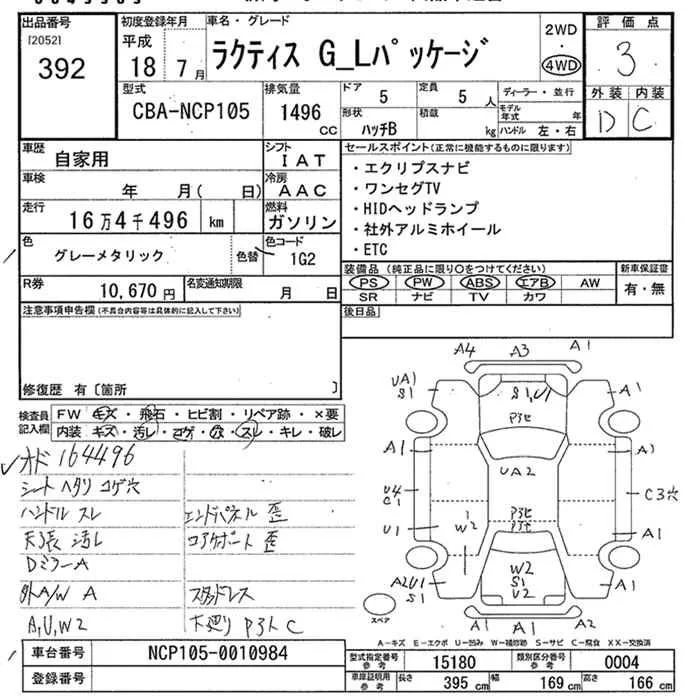 出品番号
[20521
392
初度登録年月
平成
18 7月
車名・グレード
ラクティス G_Lパッケージ
2WD
・
4WD
評価点
3
外装 内装
D C
型式
CBA-NCP105
排気量
1496 cc
ドア 5
定員 5 人
形状 ハッチB
積載 kg
ディーラー・並行
モデル年式 年
ハンドル 左・右
車歴
自家用
シフト
IAT
車検
年 月( 日)
冷房
AAC
走行
16万4千496 km
燃料
ガソリン
色
グレーメタリック
色替
色コード
1G2
R券
10,670円
名変通知期限
月 日
セールスポイント(正常に機能するものに限ります)
・エクリプスナビ
・ワンセグTV
・HIDヘッドランプ
・社外アルミホイール
・ETC
装備品(純正品に限り○をつけてください)
PS PW ABS エアB AW
SR ナビ TV カワ
新車保証書
有・無
後日品
注意事項申告欄(不具合内容等は具体的に記入して下さい)
修復歴 有〔箇所 〕
検査員記入欄
FW キズ・飛石・ヒビ割・リペア跡・×要
内装 キズ・汚レ・コゲ・穴・スレ・キレ・破レ
オド 164496
シートヘタリ コゲ穴
ハンドル スレ
エンドパネル 歪
天張 汚レ
コアサポート 歪
DミラーA
外A/W A
スタッドレス
A,U,W2
下廻り P3ヒ C
A4 A3 A1
UA1
S1
S1,U1
A1
P3ヒ
A1
UA2
A1
U4
C1
C3穴
U1
W2
P3ヒ
P3ヒ
A1
A2U1
S1
W2
S1
U2
A1
A1 A1 A2
スペア
A-キズ E-エクボ U-凹み W-補修跡 S-サビ C-腐食 XX-交換済
車台番号
NCP105-0010984
登録番号
型式指定番号 参考
15180
類別区分番号 参考
0004
車庫証明用 参考
長さ 395 cm
幅 169 cm
高さ 166 cm